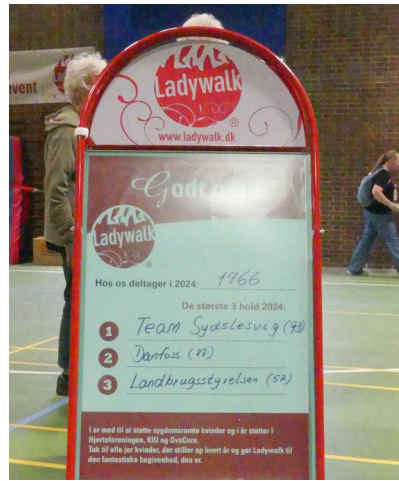 Ladywalk
®
www.ladywalk.dk
event
Godt
Ladywalk
®
Hos os deltager i 2024: 1966
De største 3 hold 2024:
1 Team Sydslesvig (93)
2 Danfoss (87)
3 Landbrugsstyrelsen (57)
I er med til at støtte sygdomsramte kvinder og i år støtter I
Hjerteforeningen, KIU og OvaCure.
Tak til alle jer kvinder, der stiller op hvert år og gør Ladywalk til
den fantastiske begivenhed, den er.